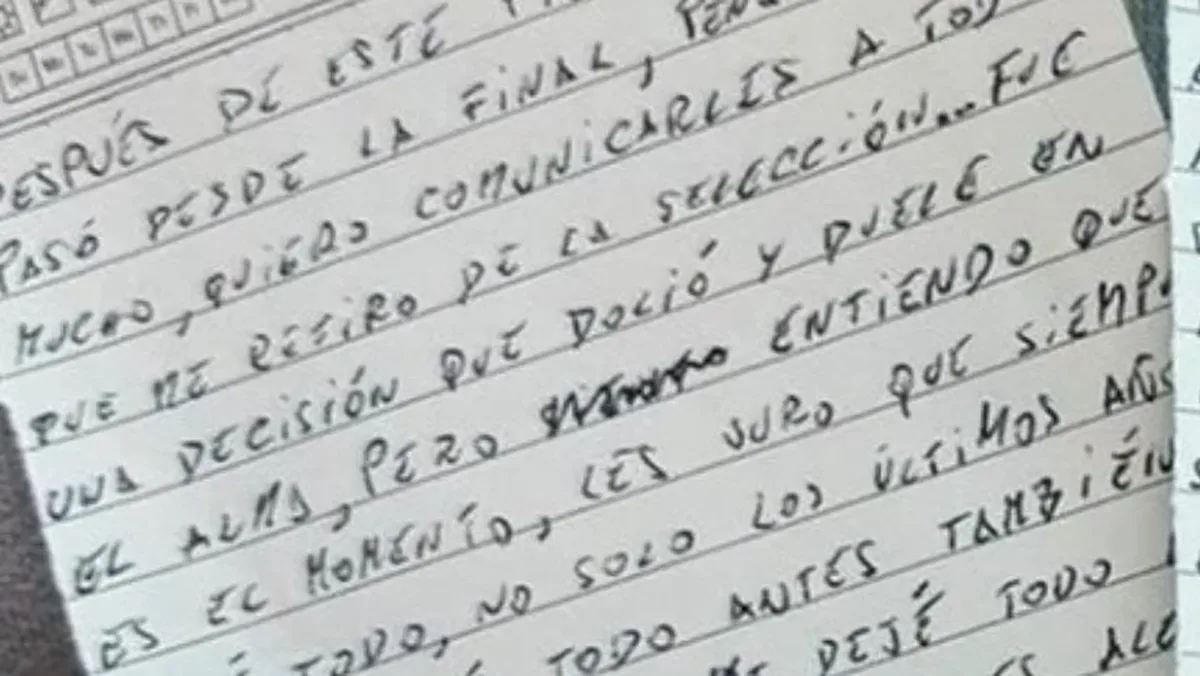 DESPUÉS DE ESTE
PASÓ DESDE LA FINAL,
MUCHO, QUIERO COMUNICARLES A
QUE ME RETIRO DE LA SELECCIÓN... FUE
UNA DECISIÓN QUE DOLIÓ Y DUELE EN
EL ALMA, PERO ENTIENDO QUE
ES EL MOMENTO, LES JURO QUE
TODO, NO SOLO LOS ÚLTIMOS AÑOS
TODO ANTES TAMBIÉN
DEJÉ TODO